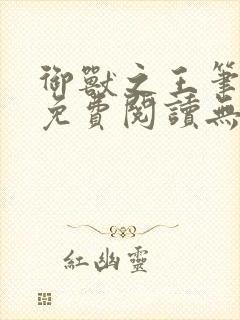 御獸之王筆
免費閱讀無
紅幽靈